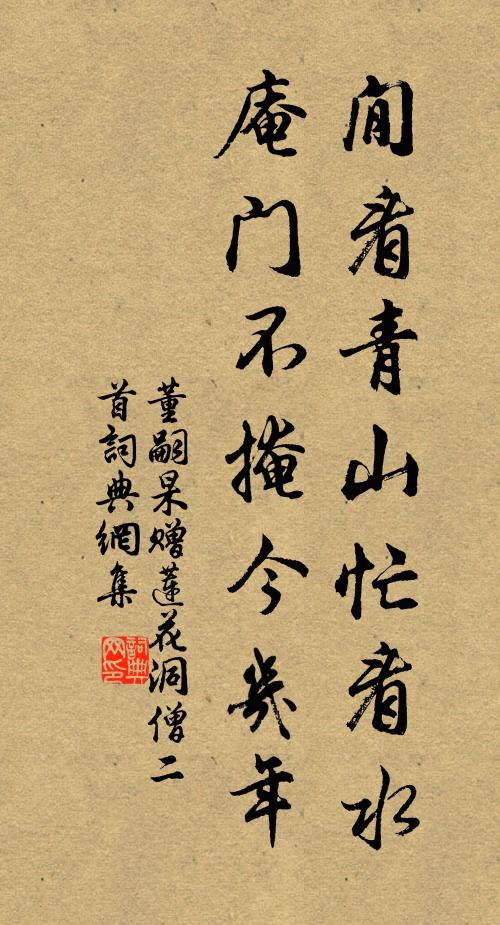 閒看青山忙看水
庵门不掩今幾年
董嗣杲赠蓮花洞僧二
首詞典網集
詞典网印